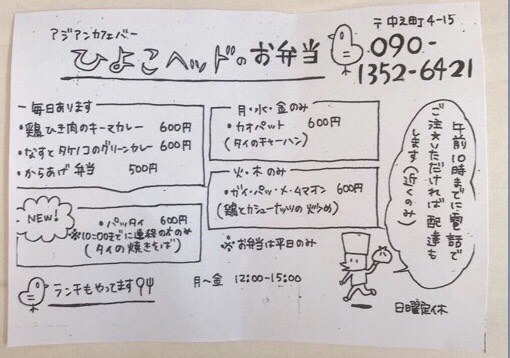 アジアンカフェバー
ひよこヘッドのお弁当
〒中之町4-15
090-
1352-6421
毎日あります
・鶏ひき肉のキーマカレー 600円
・なすとタケノコのグリーンカレー 600円
・からあげ弁当 500円
NEW!
・パッタイ 600円
※10:00までに連絡の方のみ
(タイの焼きそば)
月・水・金のみ
・カオパット 600円
(タイのチャーハン)
火・木のみ
・ガイ・パッ・メ・タマオン 600円
(鶏とカシューナッツの炒め)
※お弁当は平日のみ
午前10時までに電話で
ご注文いただければ配達も
します(近くのみ)
ランチもやってます
月〜金 12:00-15:00
日曜定休